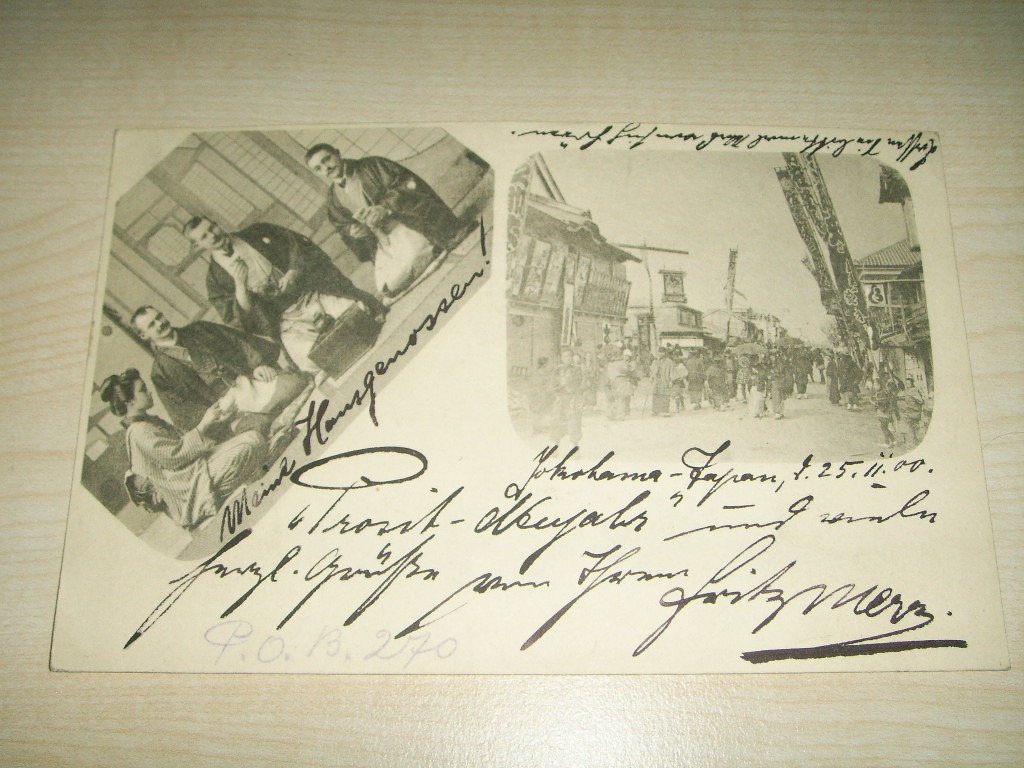 Meine Hausgenossen!
Yokohama-Japan, d. 25.II.00.
"Prosit-Neujahr" und viele
herzl. Grüße von Ihrem Fritz Merz.
P.O.B. 270